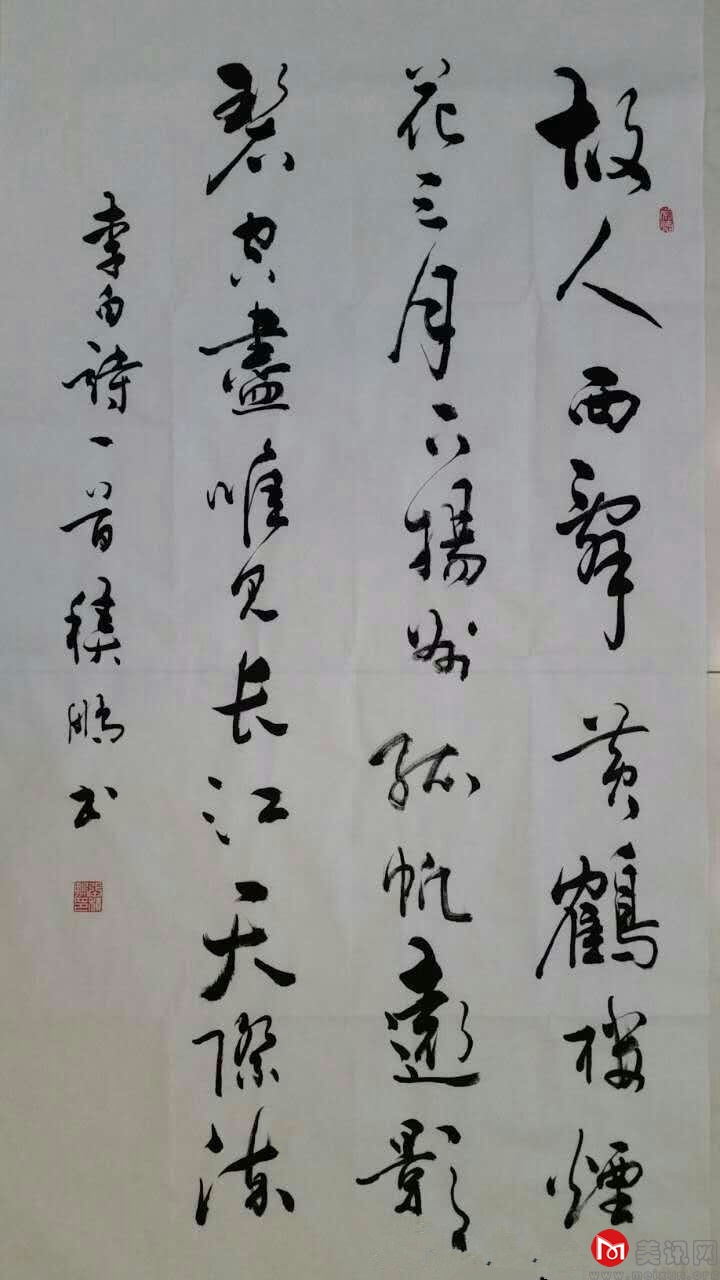 故人西辭黄鶴樓煙
花三月下揚州孤帆遠影
碧空盡唯見长江天際流
李白詩一首積鵬书
美讯网